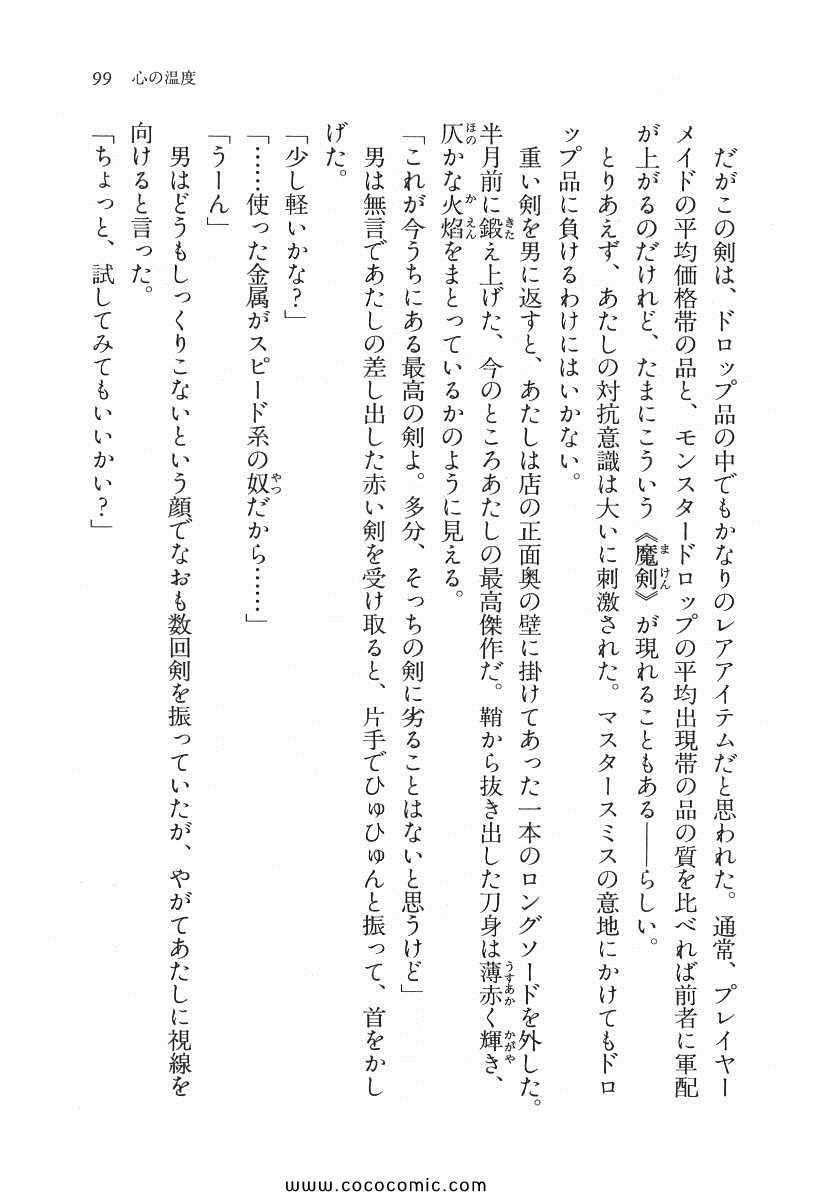 99 心の温度
だがこの剣は、ドロップ品の中でもかなりのレアアイテムだと思われた。通常、プレイヤー
メイドの平均価格帯の品と、モンスタードロップの平均出現帯の品の質を比べれば前者に軍配
が上がるのだけれど、たまにこういう《魔剣》が現れることもある――らしい。
とりあえず、あたしの対抗意識は大いに刺激された。マスタースミスの意地にかけてもドロ
ップ品に負けるわけにはいかない。
重い剣を男に返すと、あたしは店の正面奥の壁に掛けてあった一本のロングソードを外した。
半月前に鍛え上げた、今のところあたしの最高傑作だ。鞘から抜き出した刀身は薄赤く輝き、
仄かな火焰をまとっているかのように見える。
「これが今うちにある最高の剣よ。多分、そっちの剣に劣ることはないと思うけど」
男は無言であたしの差し出した赤い剣を受け取ると、片手でひゅひゅんと振って、首をかし
げた。
「少し軽いかな？」
「……使った金属がスピード系の奴だから……」
「うーん」
男はどうもしっくりこないという顔でなおも数回剣を振っていたが、やがてあたしに視線を
向けると言った。
「ちょっと、試してみてもいいかい？」
www.cococomic.com